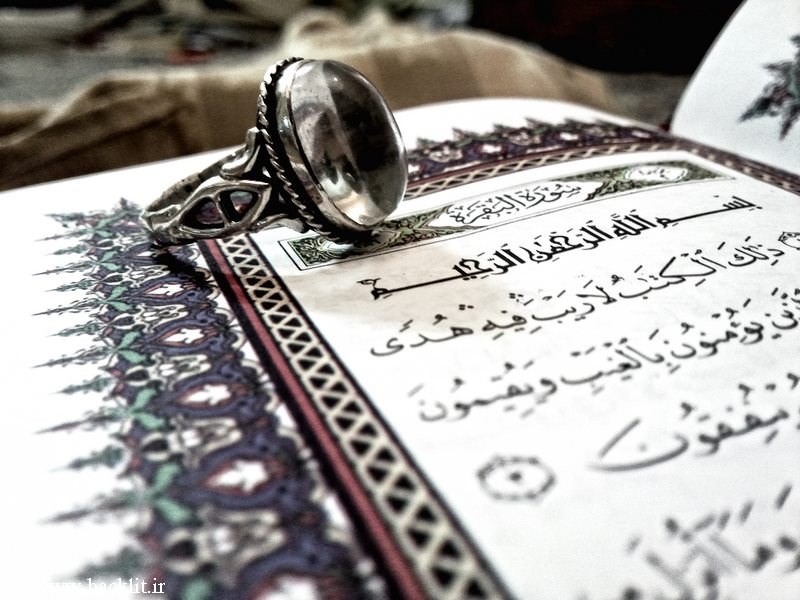 سُورَةُ البَقَرَةِ
بِسْمِ اللَّهِ الرَّحْمَٰنِ الرَّحِيمِ
ذَٰلِكَ الْكِتَٰبُ لَا رَيْبَ فِيهِ هُدًى
يُؤْمِنُونَ بِالْغَيْبِ وَيُقِيمُونَ
يُنفِقُونَ
www.backlit.ir